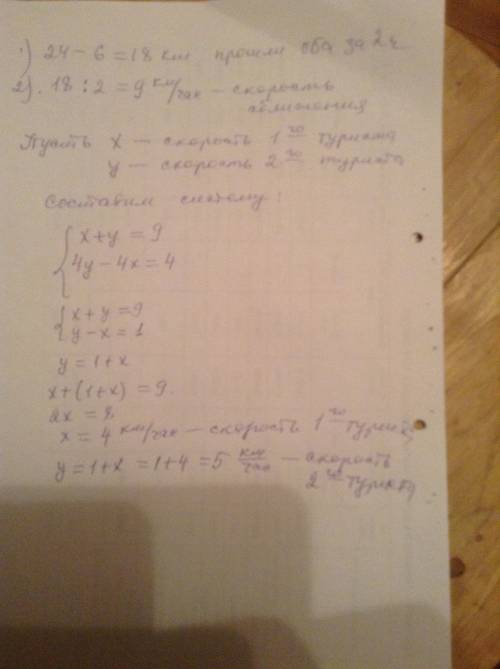 1) 24 - 6 = 18 км прошли оба за 2 ч.
2). 18 : 2 = 9 км/час — скорость
сближения
Пусть x — скорость 1го туриста
y — скорость 2го туриста
Составим систему:
x + y = 9
4y - 4x = 4
x + y = 9
y - x = 1
y = 1 + x
x + (1 + x) = 9.
2x = 8
x = 4 км/час — скорость 1го туриста
y = 1 + x = 1 + 4 = 5 км/час — скорость
2го туриста